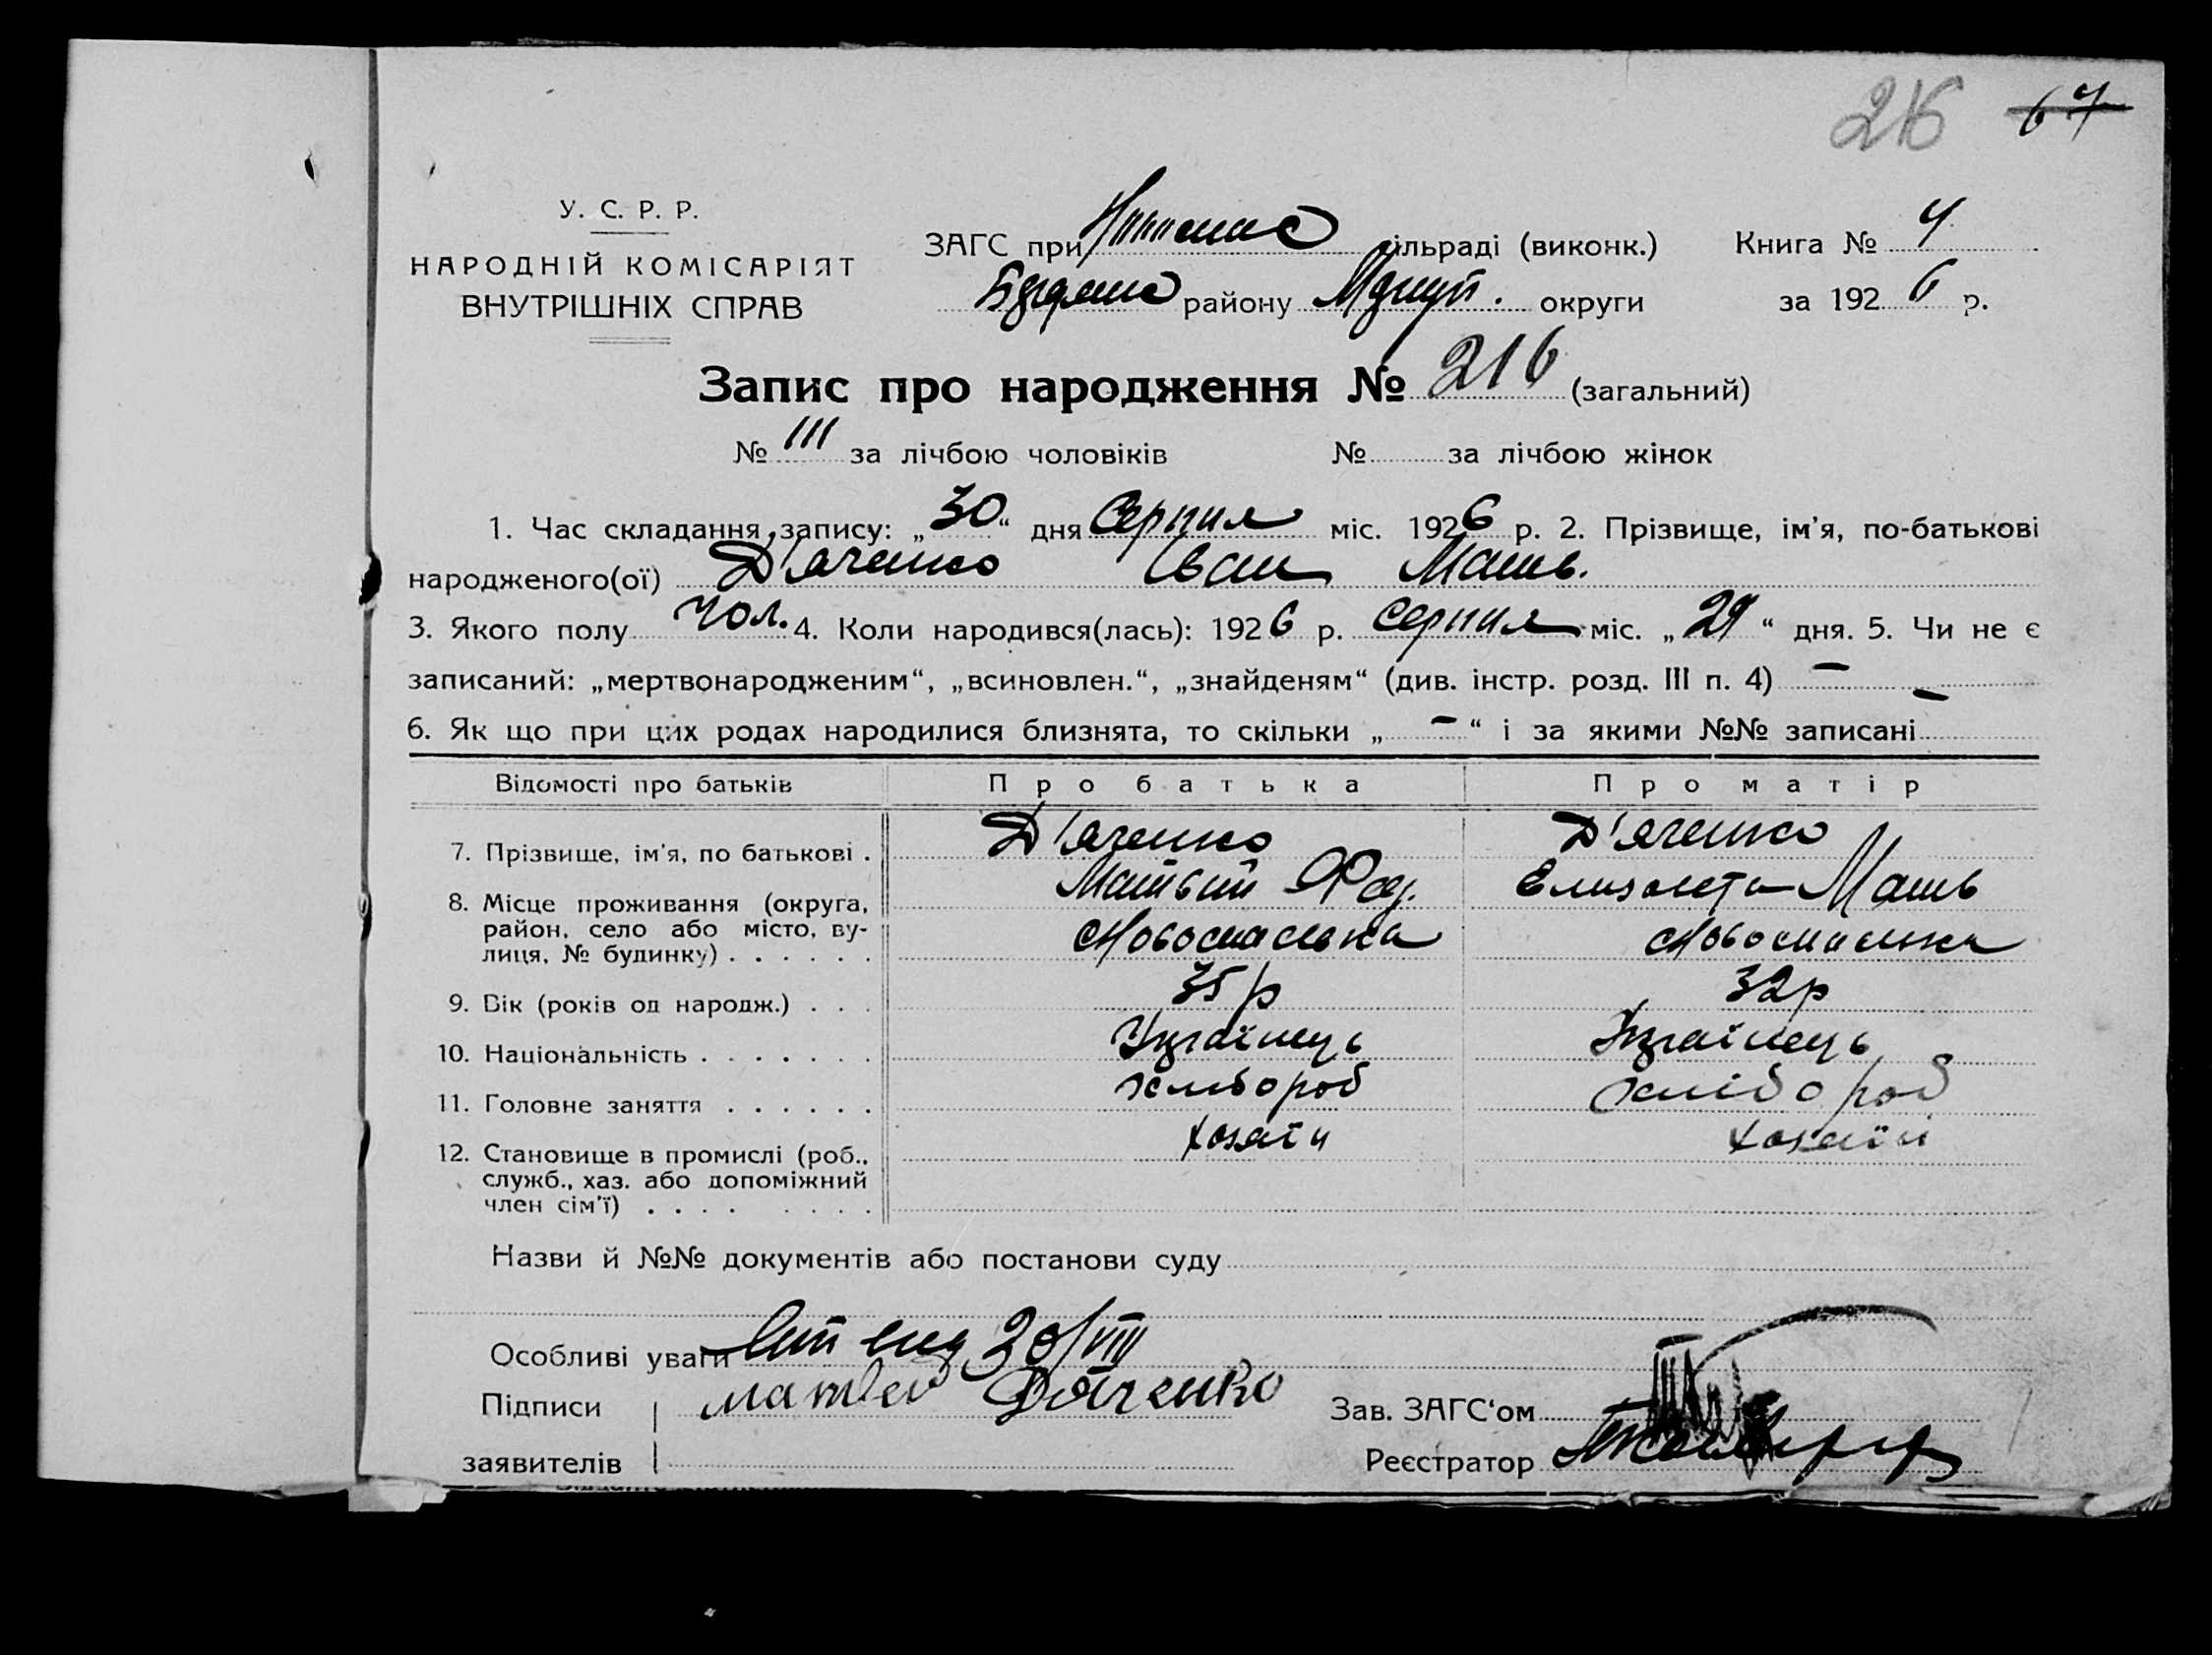 216 67
У. С. Р. Р.
НАРОДНІЙ КОМІСАРІЯТ
ВНУТРІШНІХ СПРАВ
ЗАГС при сільраді (виконк.) Книга № 4
району округи за 1926 р.
Запис про народження № 216 (загальний)
№ 111 за лічбою чоловіків № за лічбою жінок
1. Час складання запису: „30“ дня Серпня міс. 1926 р. 2. Прізвище, ім'я, по-батькові
народженого(ої) Д'яченко Іван Матв.
3. Якого полу чол. 4. Коли народився(лась): 1926 р. Серпня міс. „29“ дня. 5. Чи не є
записаний: „мертвонародженим“, „всиновлен.“, „знайденям“ (див. інстр. розд. III п. 4) —
6. Як що при цих родах народилися близнята, то скільки „—“ і за якими №№ записані —
Відомості про батьків Про батька Про матір
7. Прізвище, ім'я, по батькові . Д'яченко Д'яченко
Матвій Фед. Елизавета Матв
8. Місце проживання (округа,
район, село або місто, ву-
лиця, № будинку) . . . . . . Новоспаська Новоспаська
9. Вік (років од народж.) . . . 35 р 32 р
10. Національність . . . . . . . Українець Українець
11. Головне заняття . . . . . . хлібороб хлібороб
12. Становище в промислі (роб.,
служб., хаз. або допоміжний
член сім'ї) . . . . . . . . хозяїн хозяїн
Назви й №№ документів або постанови суду
Особливі уваги /VIII
Підписи матвей Дяченко Зав. ЗАГС‘ом
заявителів Реєстратор